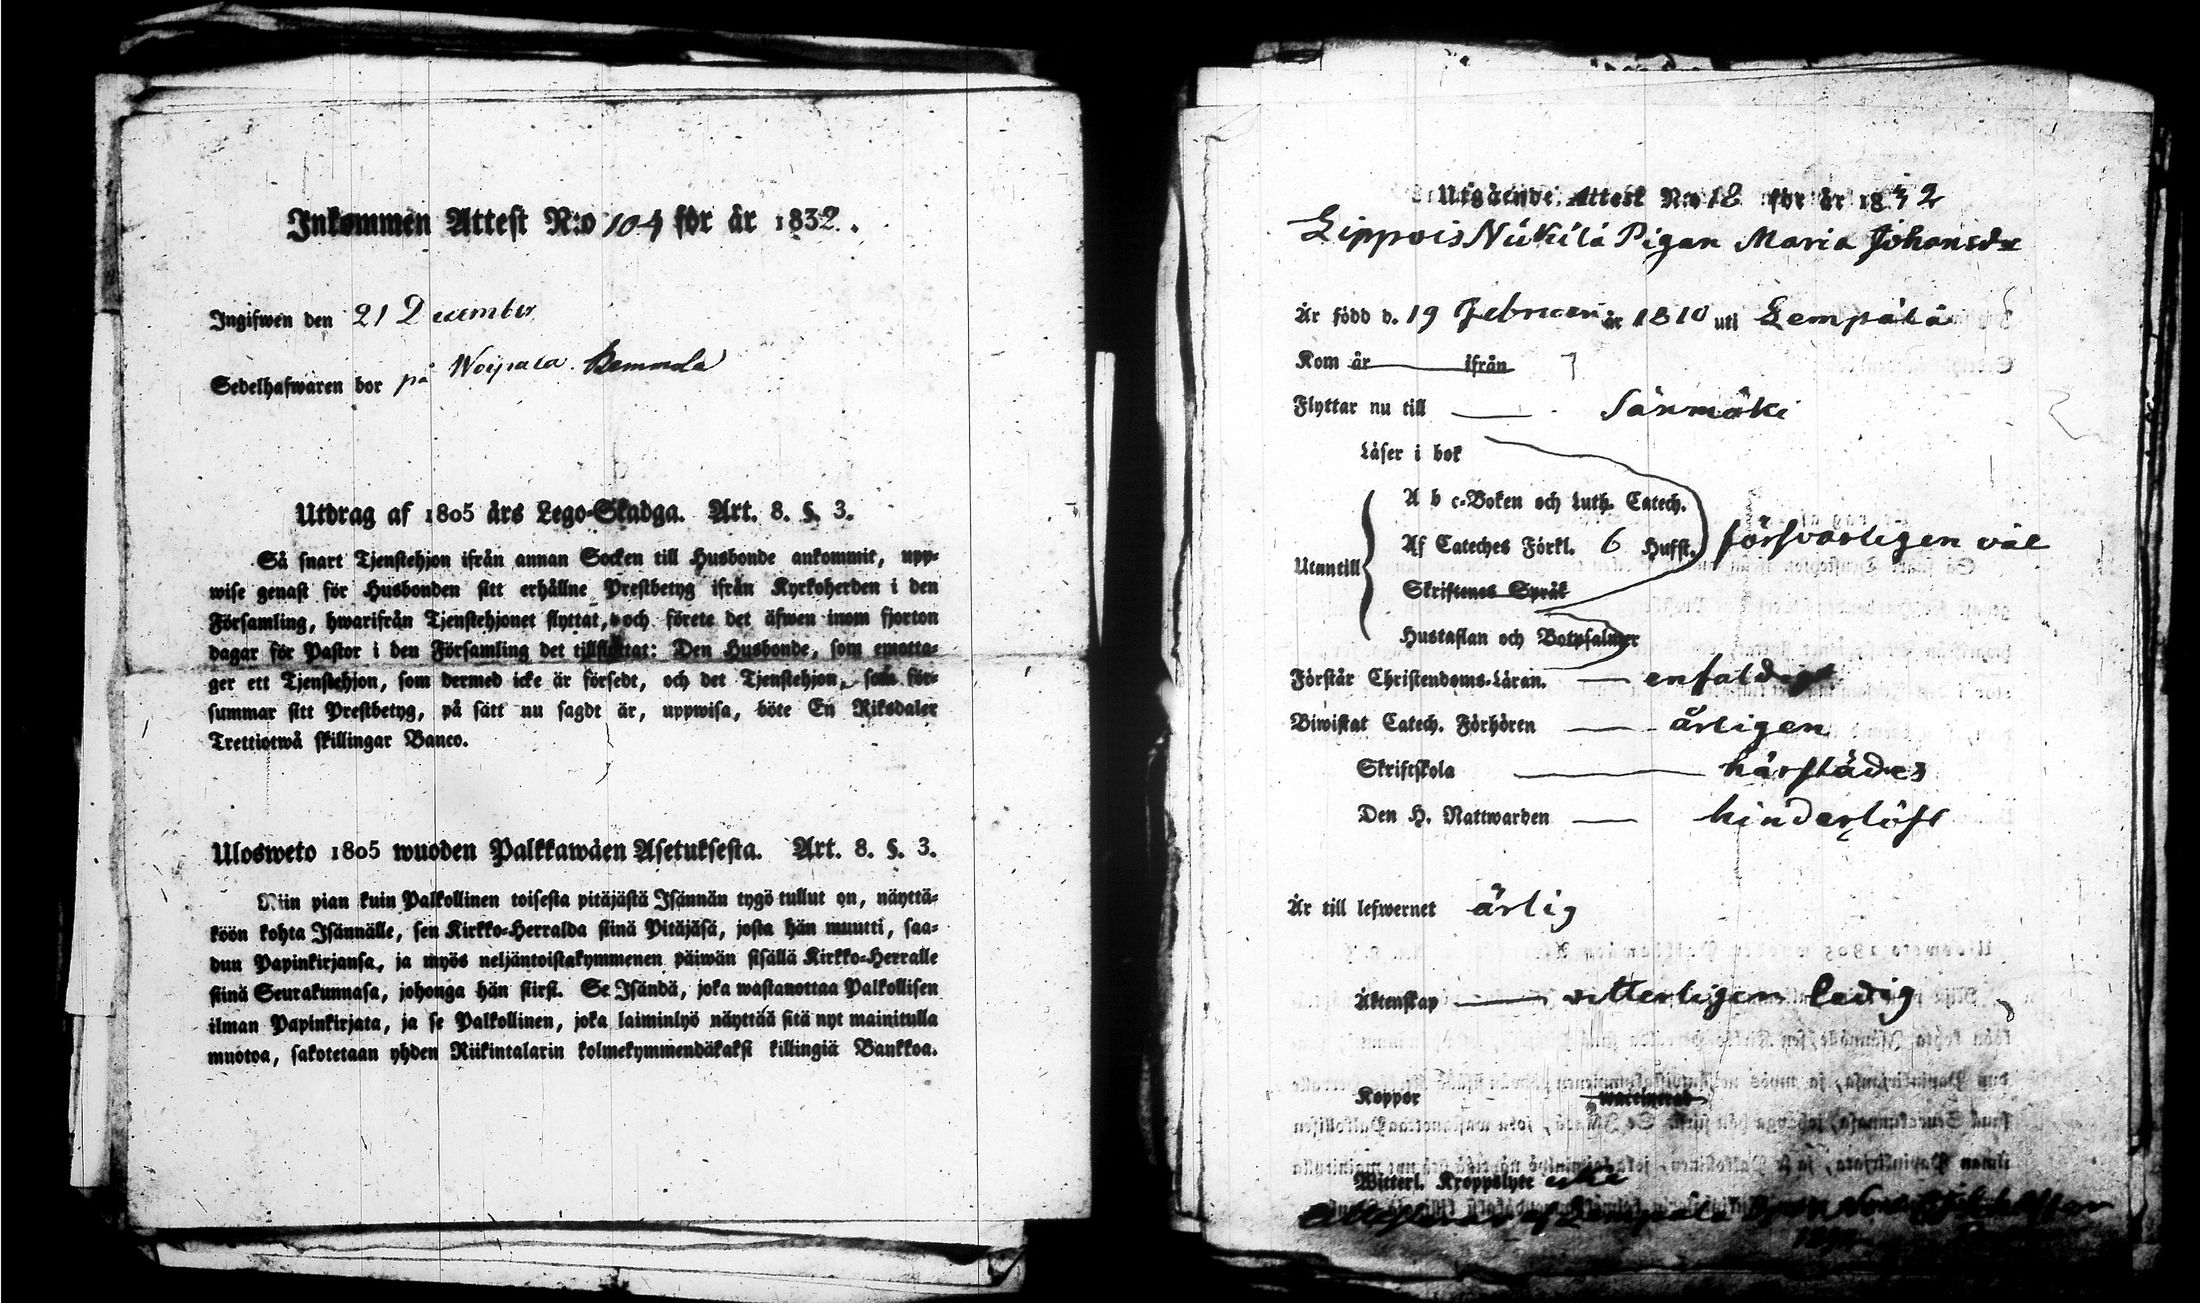 Inkommen Attest N:o 104 för år 1832.
Ingifwen den 21 December
Sedelhafwaren bor på Woipala
Utdrag af 1805 års Lego-Stadga. Art. 8. §. 3.
Så snart Tjenstehjon ifrån annan Socken till Husbonde ankommit, upp-
wise genast för Husbonden sitt erhållne Prestbetyg ifrån Kyrkoherden i den
Församling, hwarifrån Tjenstehjonet flyttat, och förete det äfwen inom fjorton
dagar för Pastor i den Församling det tillflyttat: Den Husbonde, som emotta-
ger ett Tjenstehjon, som dermed icke är försedt, och det Tjenstehjon, som för-
summar sitt Prestbetyg, på sätt nu sagdt är, uppwisa, böte En Riksdaler
Trettiotwå skillingar Banco.
Ulosweto 1805 wuoden Palkkawäen Asetuksesta. Art. 8. §. 3.
Niin pian kuin Palkollinen toisesta pitäjästä Isännän tygö tullut on, näyttä-
köön kohta Isännälle, sen Kirkko-Herralda siinä Pitäjäsä, josta hän muutti, saa-
dun Papinkirjansa, ja myös neljäntoistakymmenen päiwän sisällä Kirkko-Herralle
siinä Seurakunnasa, johonga hän siirsi. Se Isändä, joka wastanottaa Palkollisen
ilman Papinkirjata, ja se Palkollinen, joka laiminlyö näyttää sitä nyt mainitulla
muotoa, sakotetaan yhden Riikintalarin kolmekymmendäkaksi killingiä Bankkoa.
Utgående Attest N:o 18 för år 1832
Lippois Nükilä Pigan Maria Johansdr
Är född d. 19 Februari år 1810 uti Lempälä
Kom år ifrån
Flyttar nu till Säxmäki
Läser i bok
A b c-Boken och Luth. Catech.
Af Cateches Förkl. 6 Hufst. försvarligen väl
Utantill
Skriftenes Språk
Hustaflan och Botpsalmer
Förstår Christendoms-Läran. enfaldigt
Biwistat Catech. Förhören årligen
Skriftskola härstädes
Den H. Nattwarden hinderlöst
Är till lefwernet ärlig
Äktenskap vitterligen ledig
Koppor waccinerad
Witterl. Kroppslyte